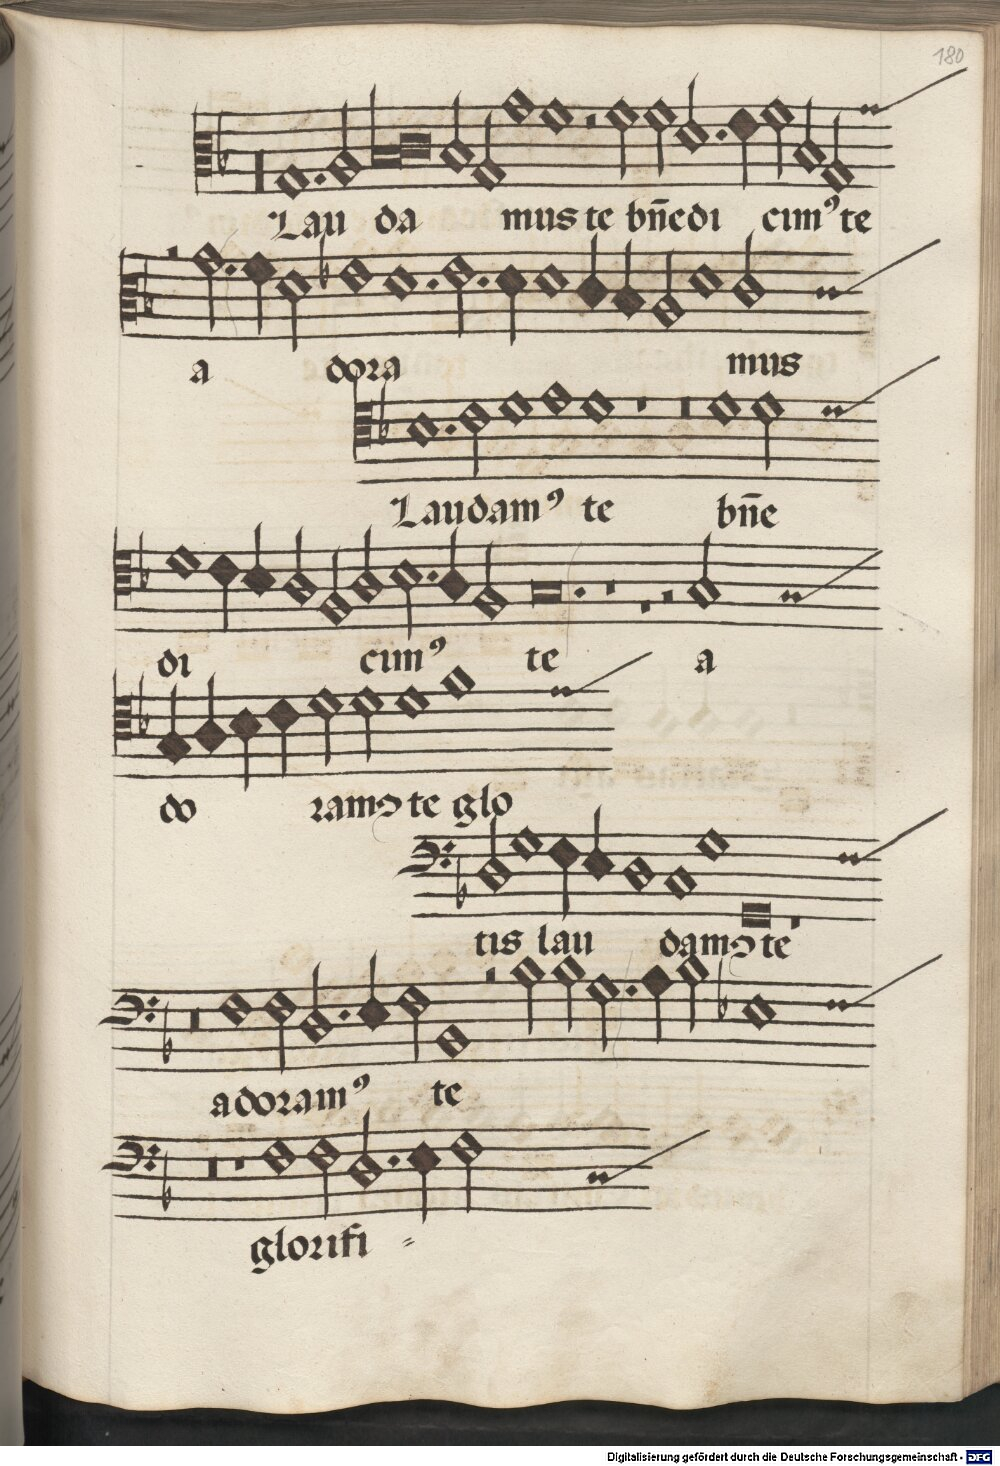 180
Lau da mus te bn̄edi cimꝰ te
a dora mus
Laudamꝰ te bn̄e
di cimꝰ te a
do ramꝰ te glo
tis lau damꝰ te
adoramꝰ te
glorifi =
Digitalisierung gefördert durch die Deutsche Forschungsgemeinschaft - DFG